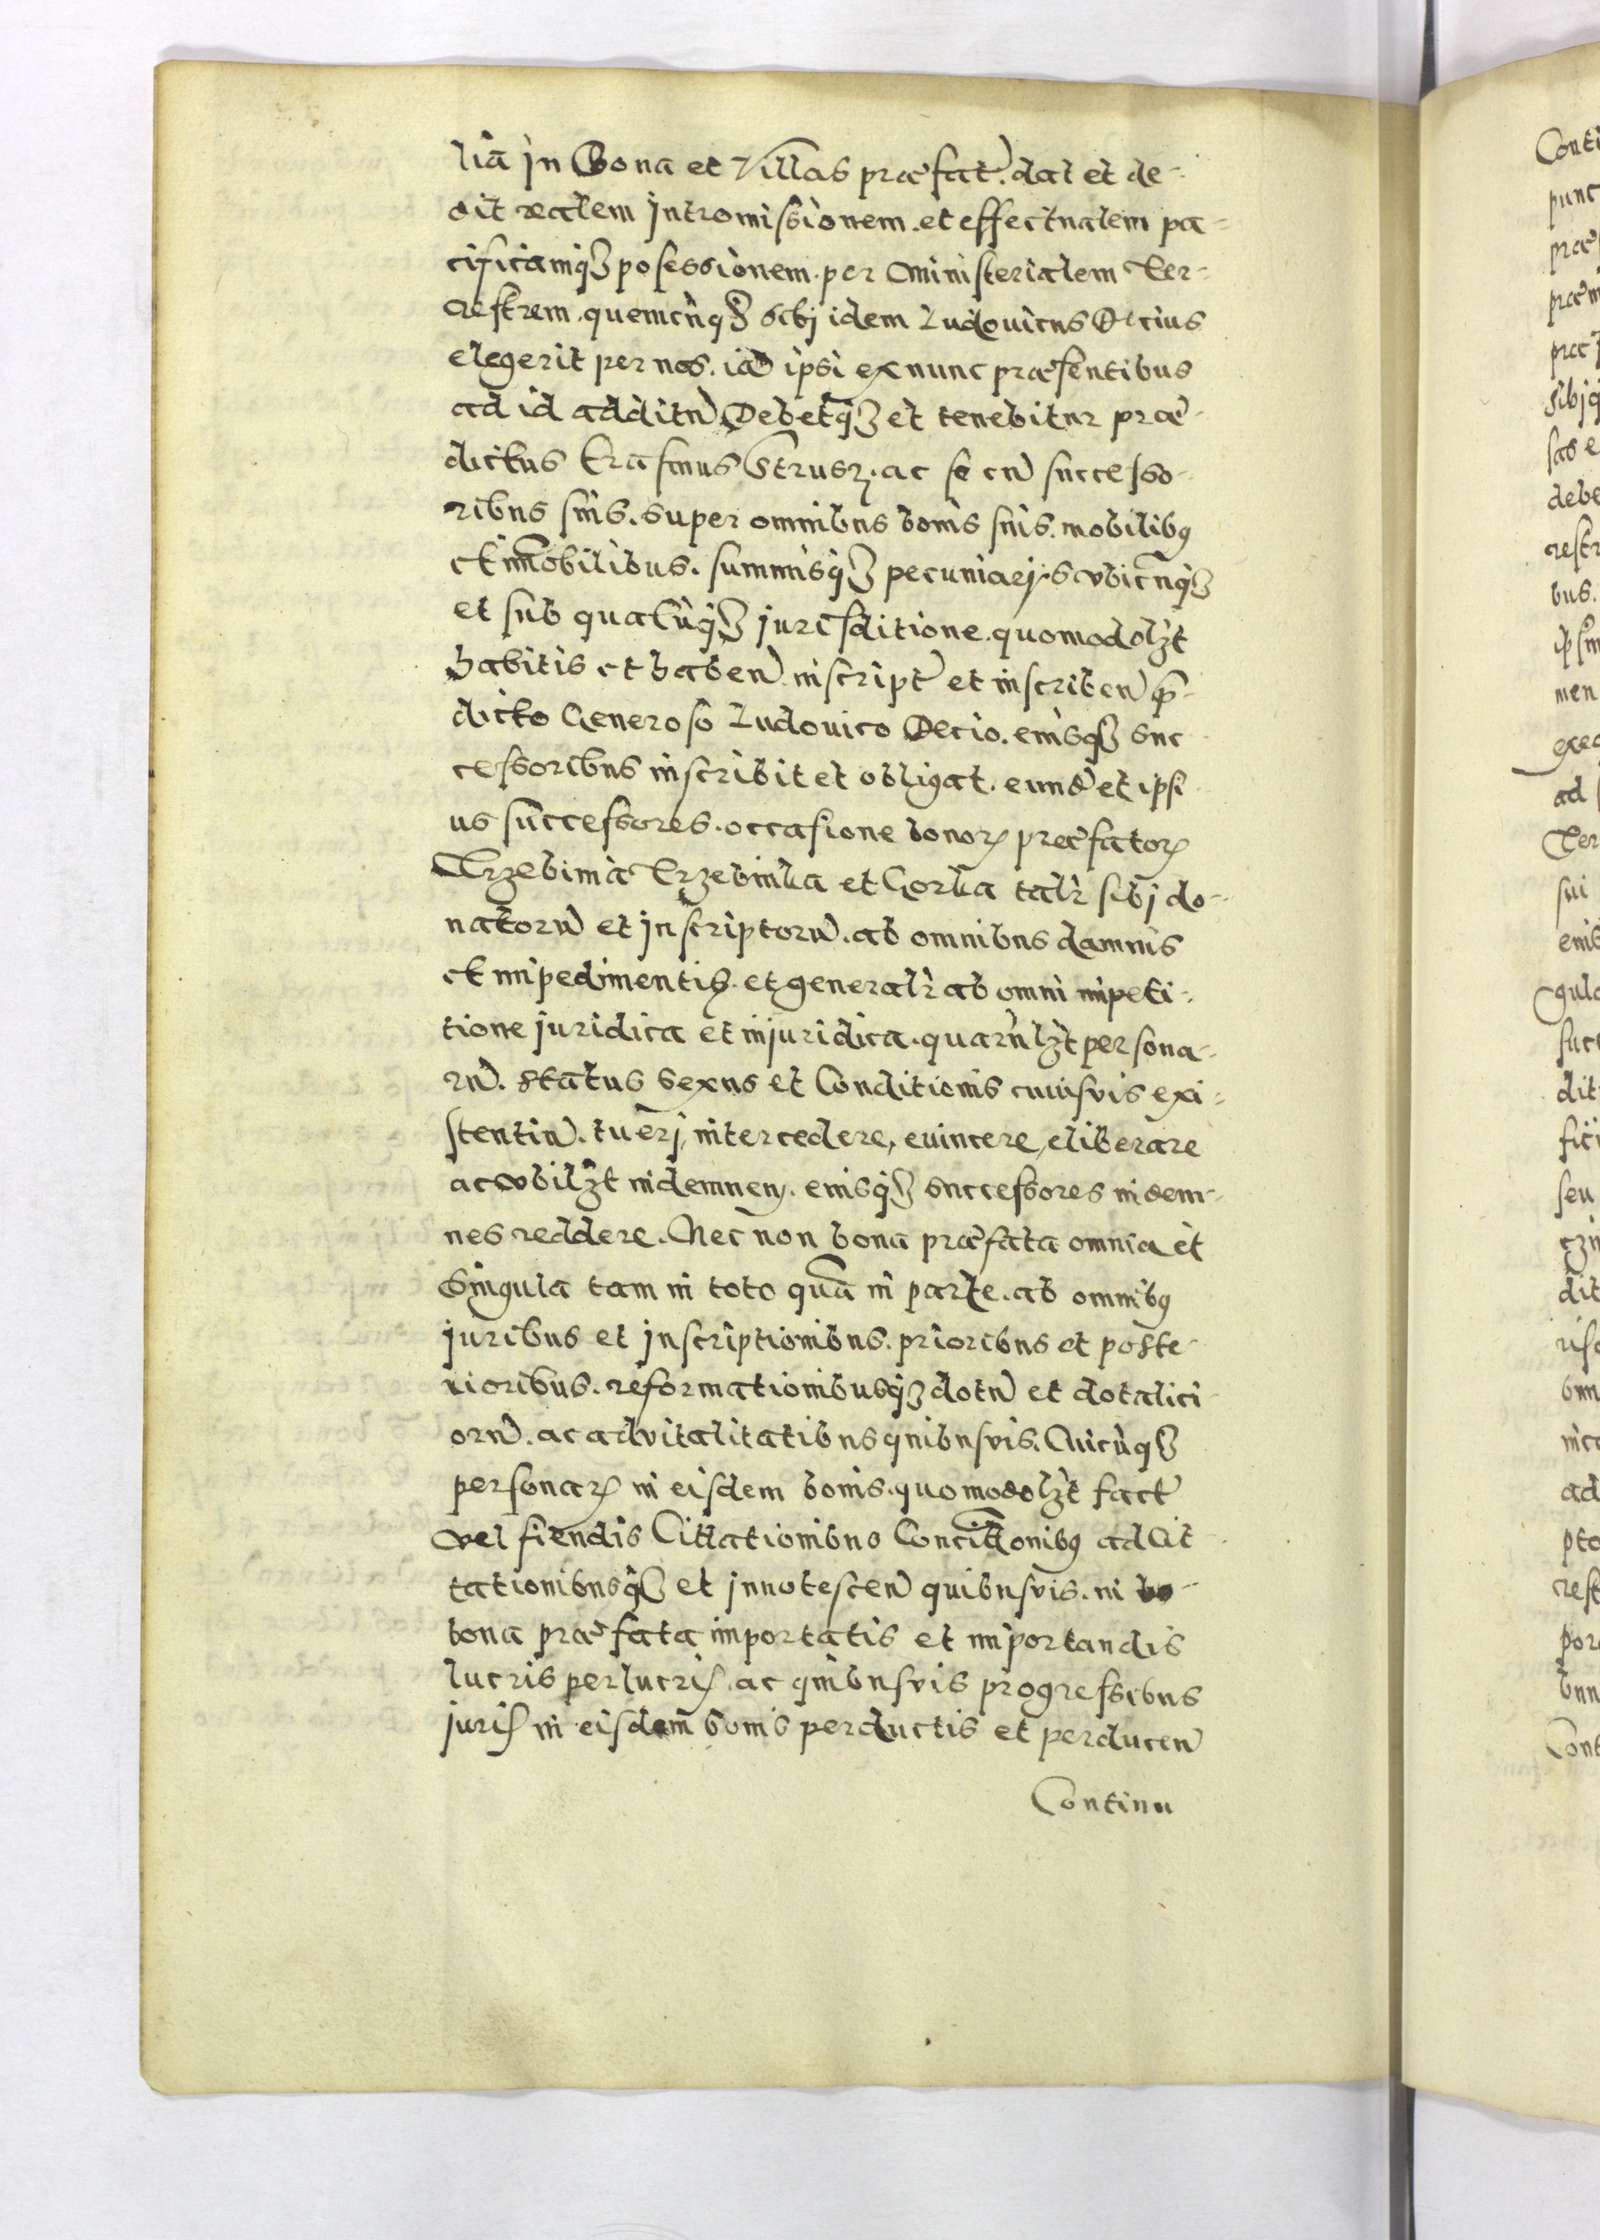 liā in Bona et Villas præfat. dat et de-
dit realem intromissionem. et effectualem pa-
cificamq3 posessionem. per Ministerialem Ter-
restrem. quemcūq3 sibj idem Ludouicus Decius
elegerit per nos. iā ipsi ex nunc præsentibus
ad id additū Debetq3 et tenebitur præ-
dictus Erasmus Strusz. ac se cū successo-
ribus suis. super omnibus bonis suis. mobilibg
et im̄obilibus. summisq3 pecuniarijs vbicūq3
et sub qualiūq3 jurisditione. quomodol3t
habitis et haben̄. inscript̄ et inscriben̄ p̄-
dicto Generoso Ludouico Decio. eiusq3 suc
cessoribus inscribit et obligat. eundē et ipsi
us successores. occasione bonoꝝ præfatoꝝ
Trzebinia Trzebinka et Gorka talr̄ sibj do-
natorū et jnscriptorū. ab omnibus damnis
et impedimentis. et generalr̄ ab omni impeti-
tione juridica et injuridica. quarūl3t persona-
rū. status sexus et Conditionis cuiusvis exi-
stentiū. tuerj, intercedere, euincere, eliberare
ac vbil3t indemnem. eiusq3 successores indem-
nes reddere. Nec non bona præfata omnia et
Singula tam in toto quā in parte. ab omnibg
juribus et jnscriptionibus. prioribus et poste-
rioribus. reformationibusq3 dotū et dotalici-
orū. ac advitalitatibus quibusvis. Cuicūq3
personaꝝ in eisdem bonis. quomodol3t fact̄
vel fiendis Cittationibus Concittonibg adcit-
tationibusq3 et jnnotescen̄ quibusvis. in bo-
bona præfata importatis et importandis
lucris perlucris. ac quibusvis progressibus
juris in eisdem bonis perductis et perducen̄
Continu
Conti
punc
præ
præm
præ
sibjq
sas e
debe
restr
bus.
men
exec
ad
Ter
sui
eius
gula
succ
dit
seu
dit
ad
pto
rest
por
Cont